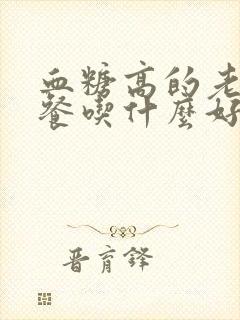 血糖高的老
餐喫什麼好
晋育鋒